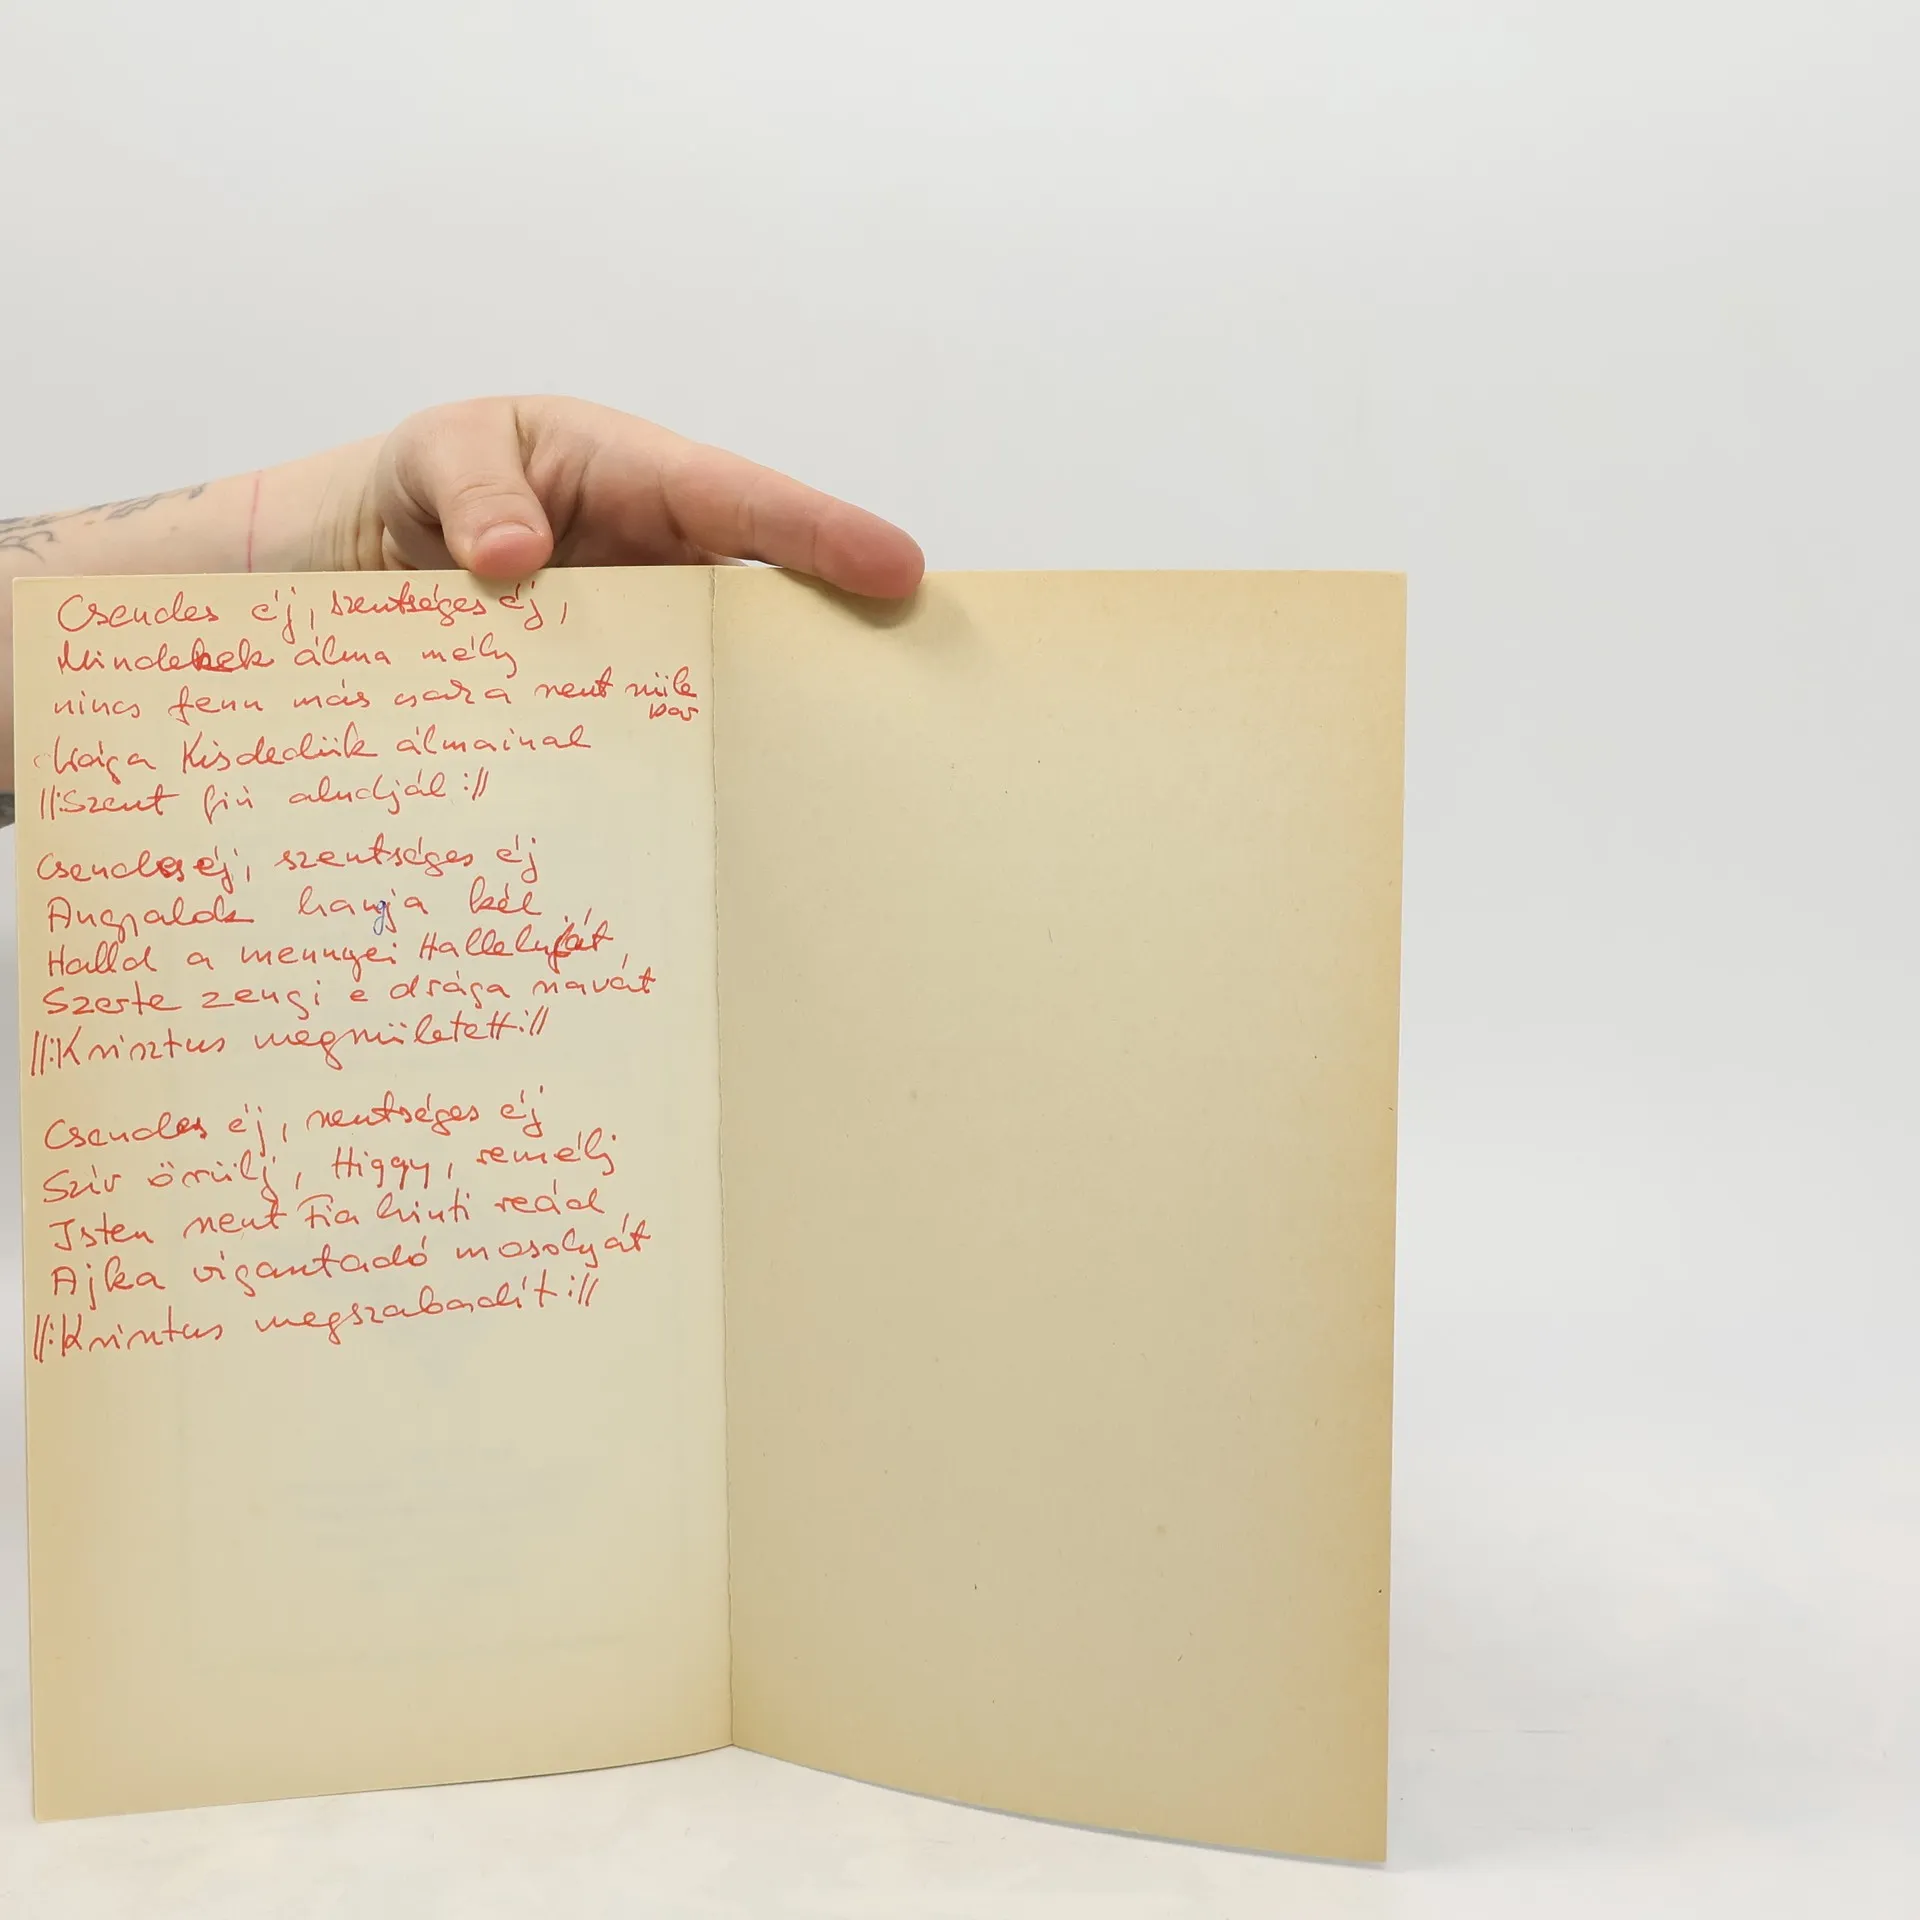 Csendes éj, szentséges éj,
Mindenek álma mély
nincs fenn más csak a szent szüle
pár
Drága Kisdedük álmainal
//:Szent fiú aludjál://
Csendes éj, szentséges éj
Angyalok hangja kél
Halld a mennyei Halleluját,
Szerte zengi e drága szavát
//:Krisztus megszületett://
Csendes éj, szentséges éj
Szív örülj, Higgy, remélj
Isten szent Fia hinti reád
Ajka vigasztadó mosolyát
//:Krisztus megszabadít://